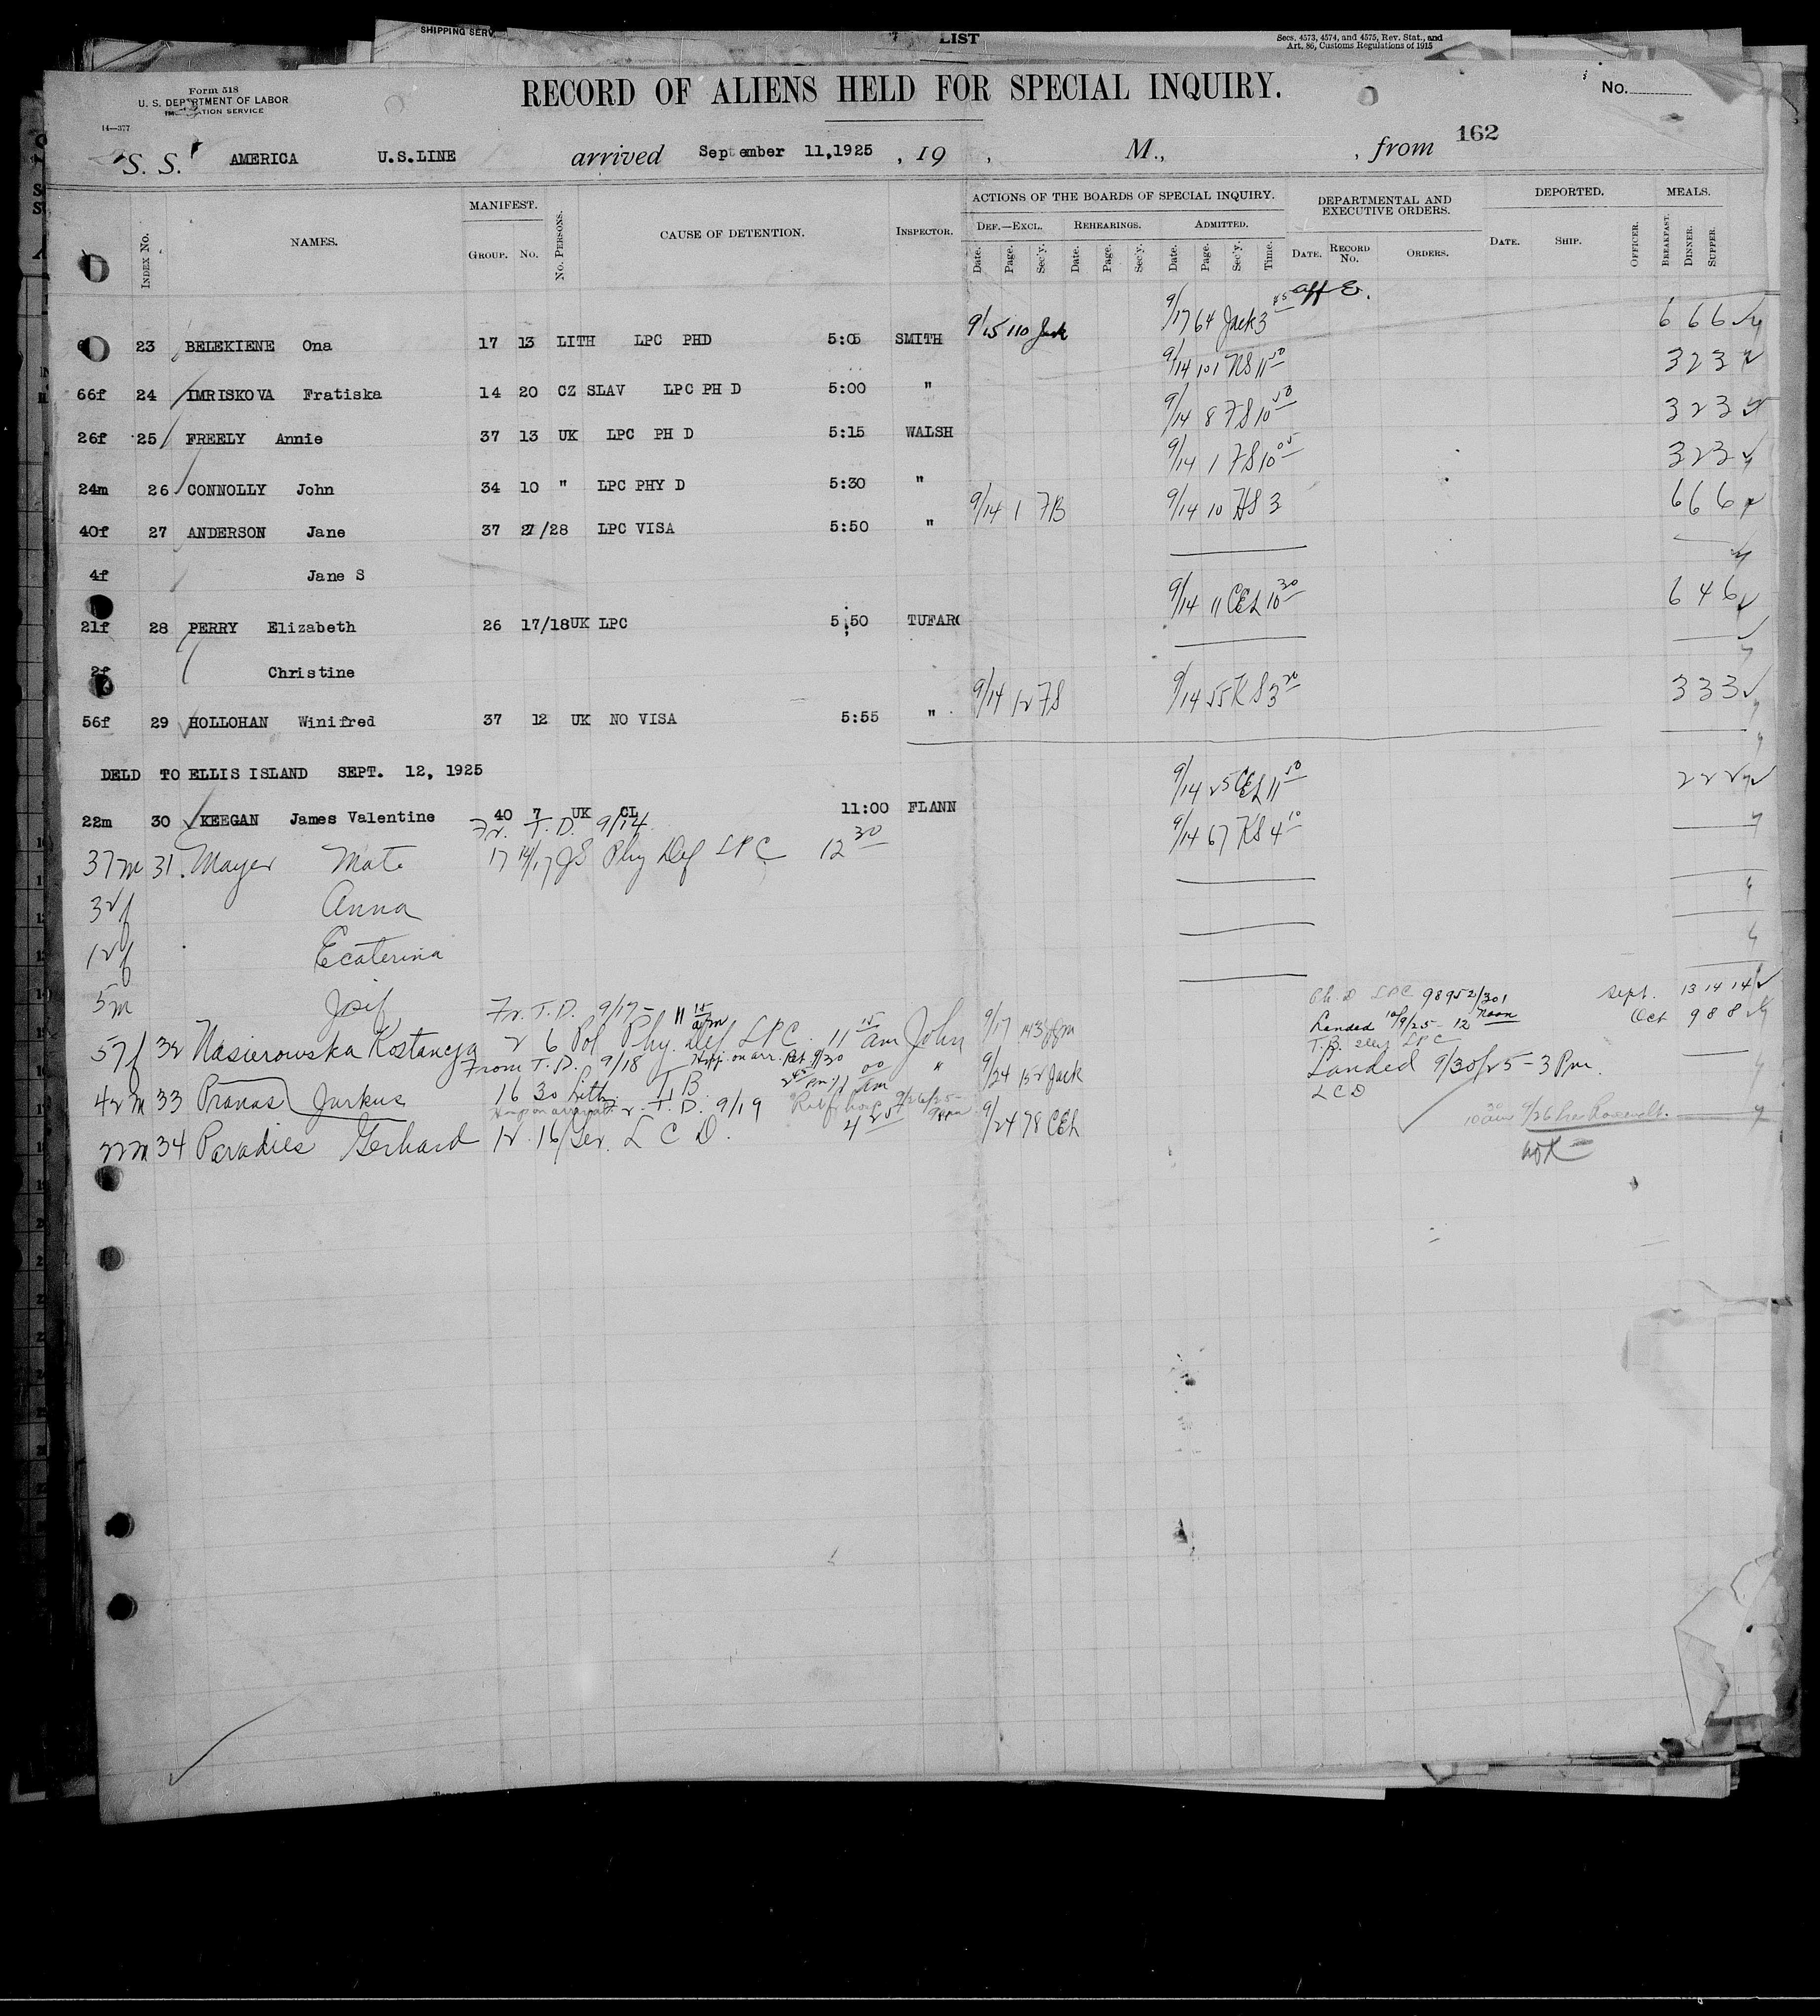 SHIPPING SERV.
LIST
Secs. 4573, 4574, and 4575, Rev. Stat., and
Art. 86, Customs Regulations of 1915
Form 518
U. S. DEPARTMENT OF LABOR
IMMIGRATION SERVICE
14—377
RECORD OF ALIENS HELD FOR SPECIAL INQUIRY.
No.
162
S. S. AMERICA U.S.LINE arrived September 11,1925 , 19 , M., , from
INDEX No. NAMES. MANIFEST. GROUP. No. No. PERSONS. CAUSE OF DETENTION. INSPECTOR. ACTIONS OF THE BOARDS OF SPECIAL INQUIRY. DEPARTMENTAL AND EXECUTIVE ORDERS. DEPORTED. MEALS.
DEF.—EXCL. REHEARINGS. ADMITTED.
Date. Page. Sec'y. Date. Page. Sec'y. Date. Page. Sec'y. Time. DATE. RECORD No. ORDERS. DATE. SHIP. OFFICER. BREAKFAST. DINNER. SUPPER.
23 BELEKIENE Ona 17 13 LITH LPC PHD 5:05 SMITH 9/15 110 Jack 9/17 64 Jack 3 45 aff E. 6 6 6
66f 24 IMRISKOVA Fratiska 14 20 CZ SLAV LPC PH D 5:00 " 9/14 101 NS 11 50 3 2 3
26f 25 FREELY Annie 37 13 UK LPC PH D 5:15 WALSH 9/14 8 FS 10 50 3 2 3
24m 26 CONNOLLY John 34 10 " LPC PHY D 5:30 " 9/14 1 FS 10 05 3 2 3
40f 27 ANDERSON Jane 37 27/28 LPC VISA 5:50 " 9/14 1 FB 9/14 10 HS 3 6 6 6
4f Jane S
21f 28 PERRY Elizabeth 26 17/18 UK LPC 5:50 TUFARO 9/14 11 CEL 10 30 6 4 6
2f Christine
56f 29 HOLLOHAN Winifred 37 12 UK NO VISA 5:55 " 9/14 12 FS 9/14 55 KS 3 20 3 3 3
DELD TO ELLIS ISLAND SEPT. 12, 1925
22m 30 KEEGAN James Valentine 40 7 UK CL 11:00 FLANN 9/14 25 CEL 11 50 2 2 2
Fr. T. D. 9/14
37m 31. Mayer Mate 17 14/17 JS Phy Def LPC 12 30 9/14 67 KS 4 10
32f Anna
12f Ecaterina
5m Josif
Fr. T. D. 9/17 - 11 15 am
Ph. D LPC 98952/301 Sept. 13 14 14
57f 32 Nasierowska Kostancya 2 6 Pol Phy. Def LPC 11 15 am John 9/17 143 Landed 10/9/25 - 12 Noon Oct 9 8 8
From T. D. 9/18 Hosp. on arr. Ret. 9/30 2 45 pm
T.B. LPC
42m 33 Pranas Jurkus 16 30 Lith T B 11 00 am " 9/24 152 Jack Landed 9/30/25 - 3 Pm.
Hosp on arrival Fr. T. D. 9/19 Ret f hosp 9/26/25
LCD
22m 34 Paradies Gerhard 12 16 Ger. L C D. 4 25 9/24 78 CEL 10 30 am 9/26 Pres Roosevelt.